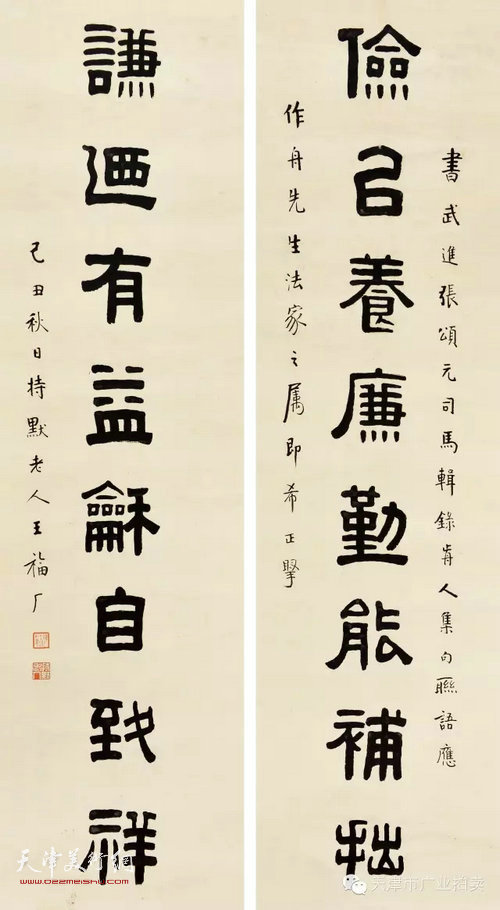 書武進張頌元司馬輯錄歬人集句聯語應
儉㠯養廉勤能補拙
作舟先生法家之属即希正掔
謙迺有益龢自致祥
己丑秋日持默老人王福厂
天津美术網
www.022meishu.com
天津市广业拍卖